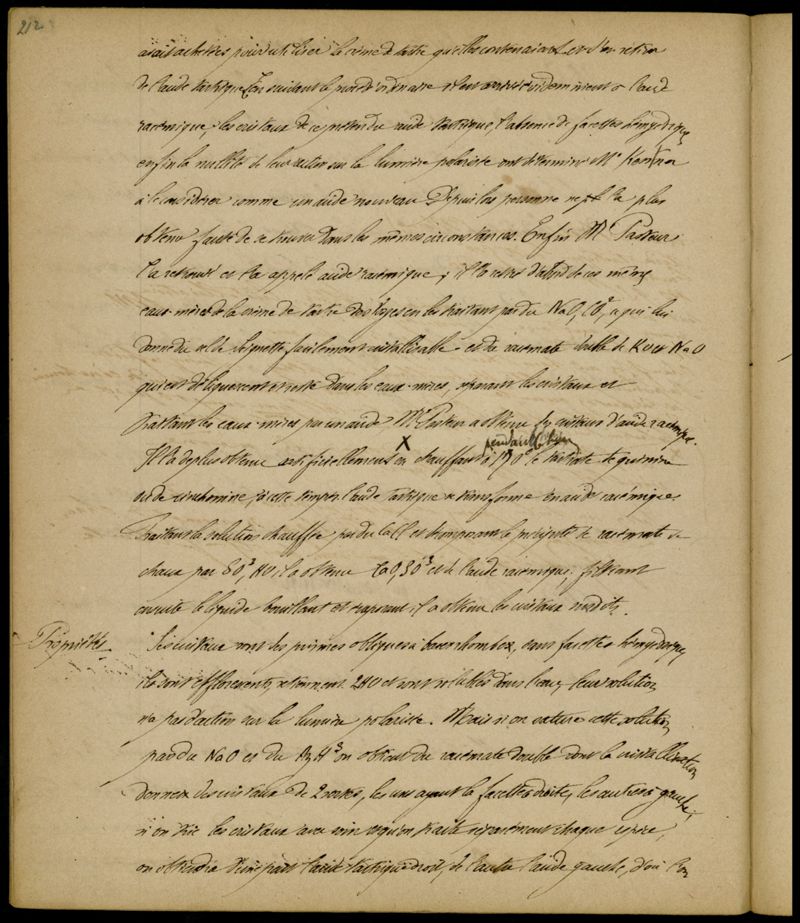 212
avait achetées pour utiliser la crème de tartre qu'elles contenaient et d'en retirer
de l'acide tartrique. En suivant le procédé ordinaire il est arrivé évidemment à l'acide
racémique; les cristaux de ce prétendu acide tartrique, l'absence de facettes hémyedriques
enfin la nullité de leur action sur la lumière polarisée ont déterminé Mr Kestner
à le considérer comme un acide nouveau. Depuis lors personne ne l'a plus
obtenu faute de se trouver dans les mêmes circonstances. Enfin Mr Pasteur
l'a retrouvé et l'a appelé acide racémique; il l'a retiré d'abord de ces mêmes
eaux mères de la crème de tartre des Vosges en les traitant par du NaO, CO², ce qui lui
donne du sel de Seignette facilement cristallisable et du racémate double de KO et NaO
qui est déliquescent et reste dans les eaux mères, séparant les cristaux et
traitant les eaux mères par un acide Mr Pasteur a obtenu les cristaux d'acide racémique.
pendant
X
Il l'a de plus obtenu artificiellement en chauffant à 170° le tartrate de quinine
ou de cinchonine, à cette température l'acide tartrique se transforme en acide racémique.
Traitant la solution chauffée par du CaCl et décomposant le précipité de racémate de
chaux par SO³, HO il a obtenu CaO, SO³ et de l'acide racémique; filtrant
ensuite le liquide bouillant et évaporant il a obtenu les cristaux susdits.
Propriétés. Ses cristaux sont des prismes obliques à base rhombes, sans facettes hémyedriques
ils sont efflorescents, retiennent 2HO et sont solubles dans l'eau, leur solution
n'a pas d'action sur la lumière polarisée. Mais si on sature cette solution
par du NaO et du AzH³ on obtient du racémate double dont la cristallisation
donnera des cristaux de 2 sortes, les uns ayant la facette à droite, les autres à gauche;
si on trie les cristaux avec soin et qu'on traite séparément chaque espèce,
on obtiendra d'une part l'acide tartrique droit, de l'autre l'acide gauche, d'où l'on